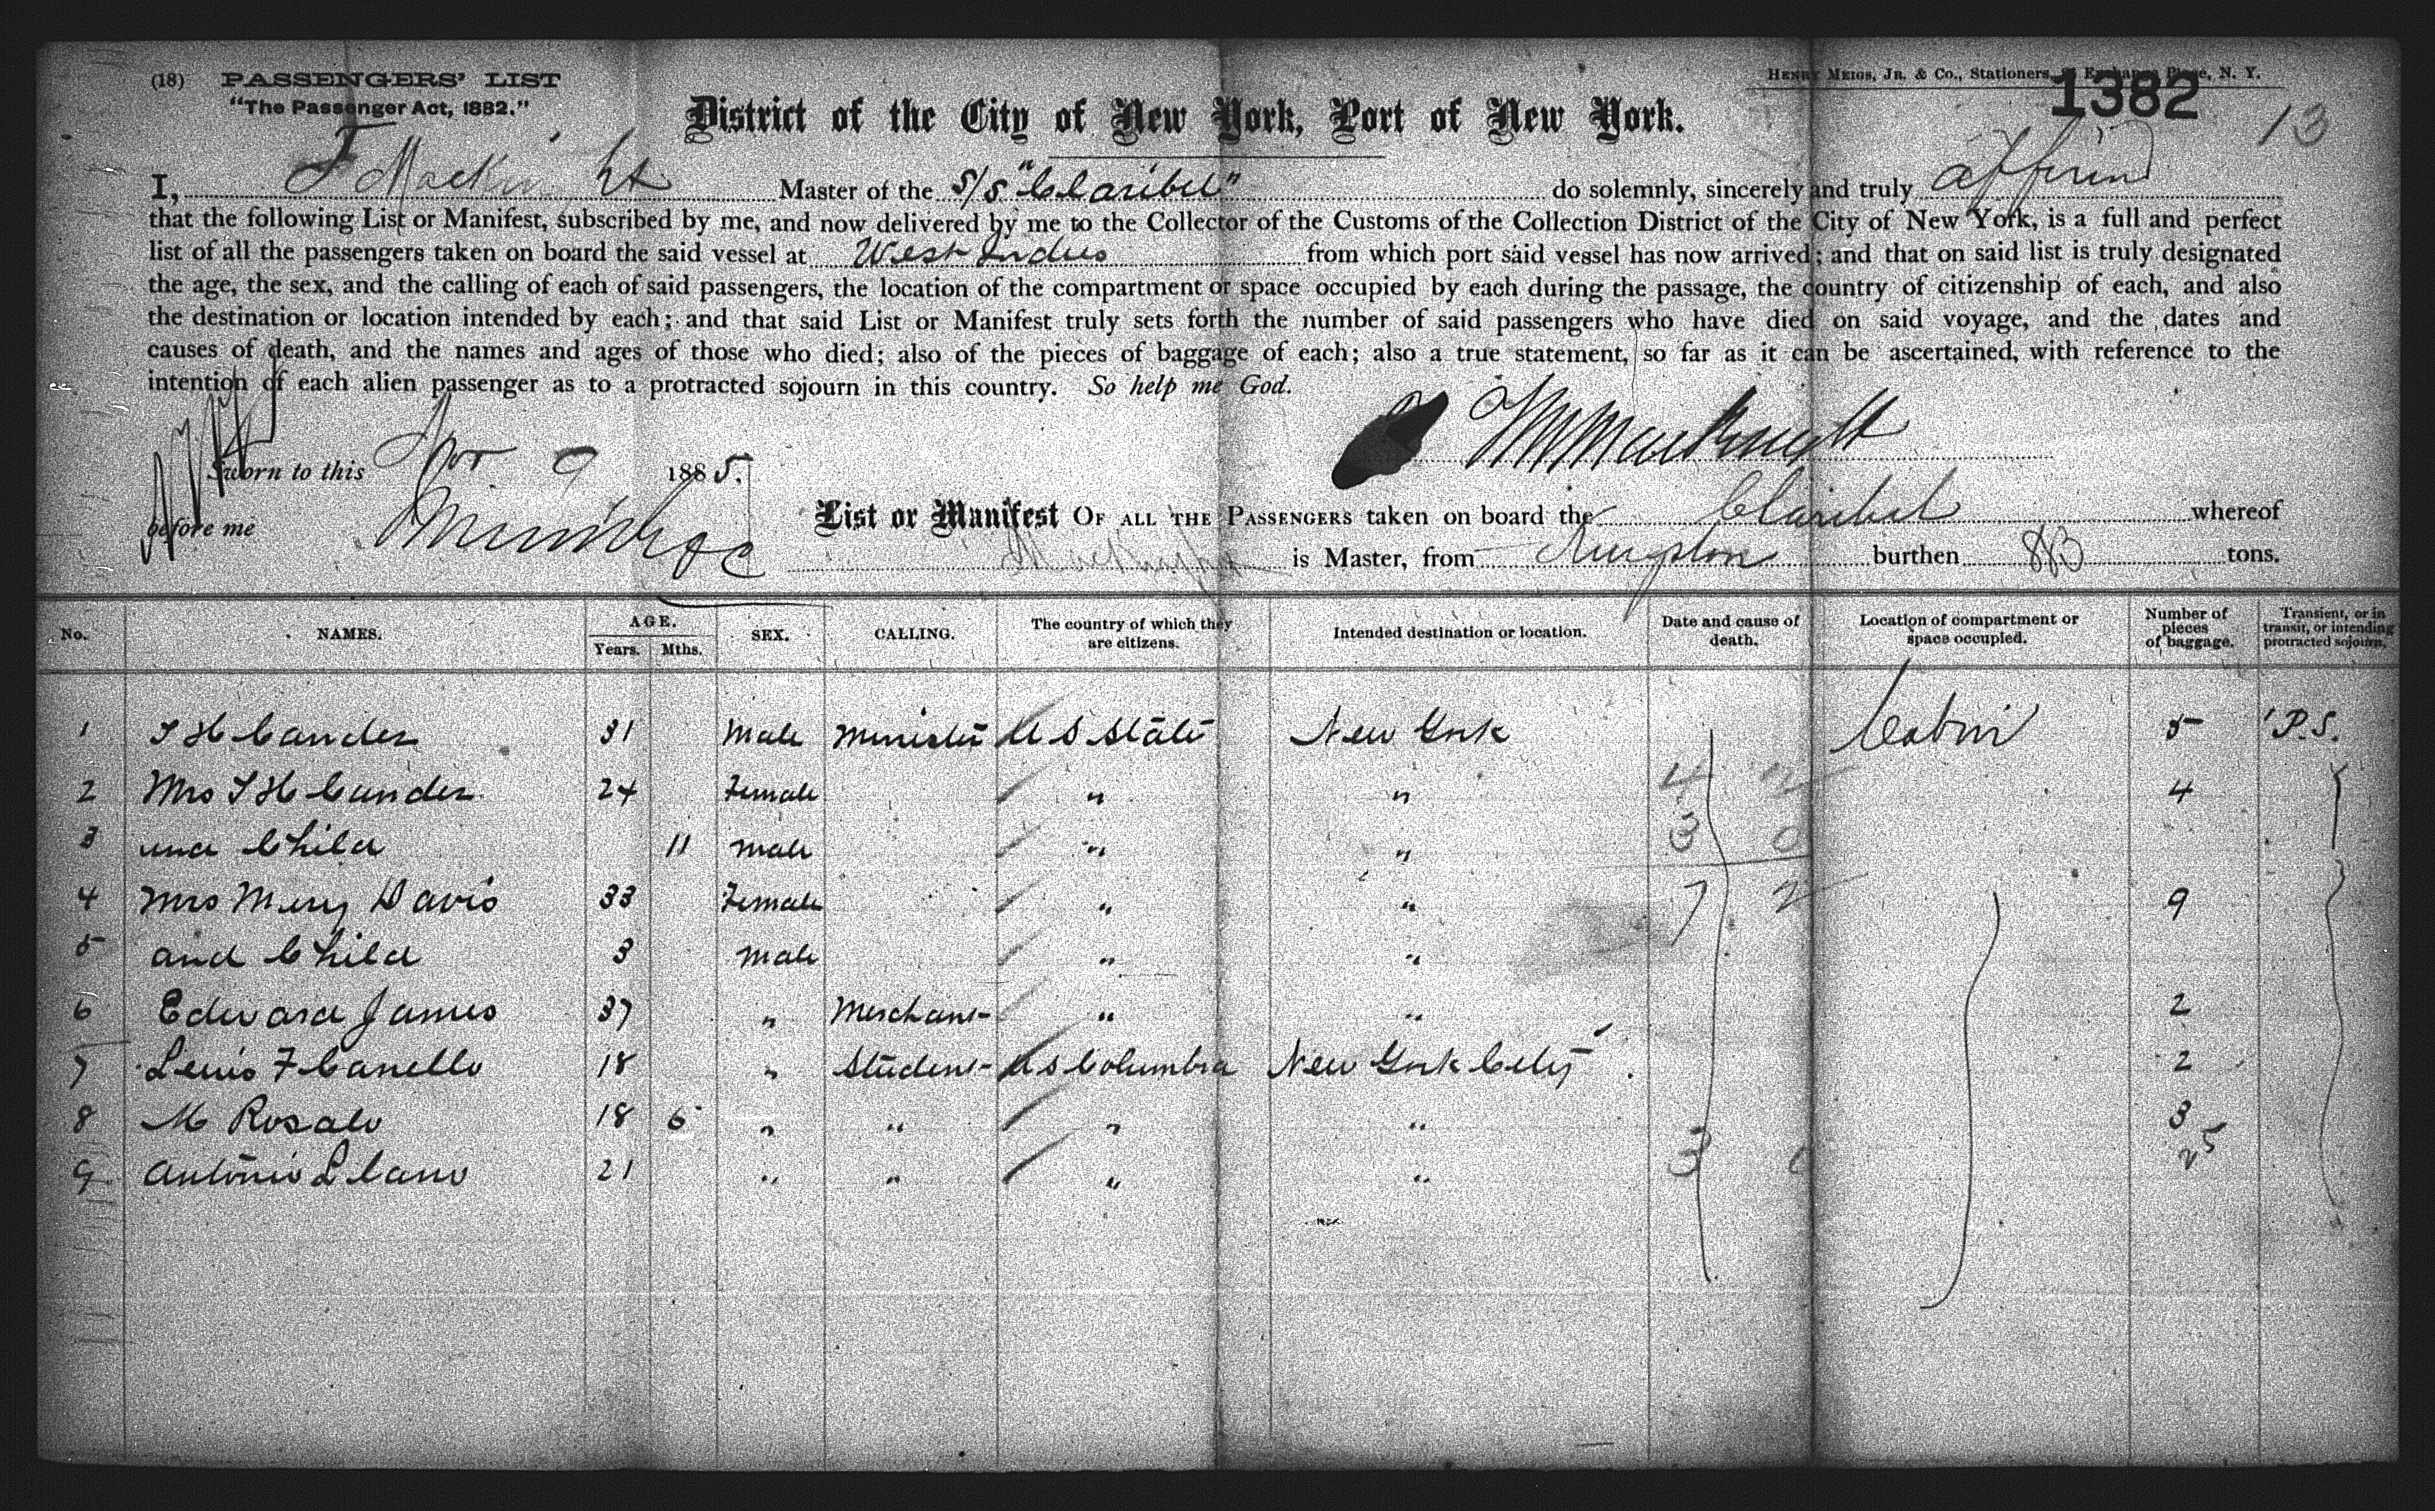 (18) PASSENGERS' LIST
"The Passenger Act, 1882."
HENRY MEIGS, JR. & CO., Stationers, Exchange Place, N. Y.
1382
13
District of the City of New York, Port of New York.
I, Master of the S/S "Claribel" do solemnly, sincerely and truly affirm
that the following List or Manifest, subscribed by me, and now delivered by me to the Collector of the Customs of the Collection District of the City of New York, is a full and perfect
list of all the passengers taken on board the said vessel at West Indies from which port said vessel has now arrived; and that on said list is truly designated
the age, the sex, and the calling of each of said passengers, the location of the compartment or space occupied by each during the passage, the country of citizenship of each, and also
the destination or location intended by each; and that said List or Manifest truly sets forth the number of said passengers who have died on said voyage, and the dates and
causes of death, and the names and ages of those who died; also of the pieces of baggage of each; also a true statement, so far as it can be ascertained, with reference to the
intention of each alien passenger as to a protracted sojourn in this country. So help me God.
Sworn to this Nov 9 1885.
before me
List or Manifest OF ALL THE PASSENGERS taken on board the Claribel whereof
is Master, from Kingston burthen tons.
No. NAMES. AGE. Years. Mths. SEX. CALLING. The country of which they are citizens. Intended destination or location. Date and cause of death. Location of compartment or space occupied. Number of pieces of baggage. Transient, or in transit, or intending protracted sojourn.
1 31 Male Minister U S State New York Cabin 5 P.S.
2 Mrs 24 Female " " 4
3 and Child 11 Male " "
4 Mrs Mary Davis 33 Female " " 9
5 and Child 3 Male " "
6 Edward James 37 " Merchant " " 2
7 Lewis F Canello 18 " Student U S Columbia New York City 2
8 M Rosalo 18 6 " " " " 3
9 Antonio L Cano 21 " " " "
25
4 2
3 0
7 2
3